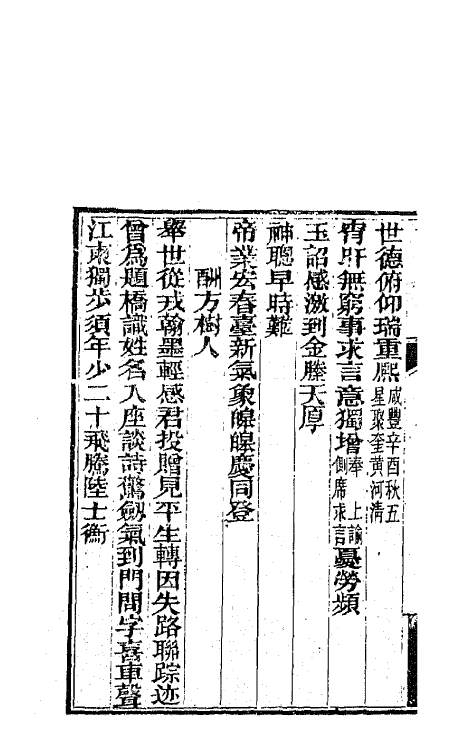 世德俯仰瑞重熙咸豐辛酉秋五星聚奎黃河清
宵旰無窮事求言意獨增奉上諭側席求言憂勞頻
玉詔感激到金縢天厚
神聰早時難
帝業宏春臺新氣象皞皞慶同登
酬方樹人
舉世從戎翰墨輕感君投贈見平生轉因失路聯踪迹
曾為題橋識姓名入座談詩驚劒氣到門問字喜車聲
江東獨步須年少二十飛騰陸士衡